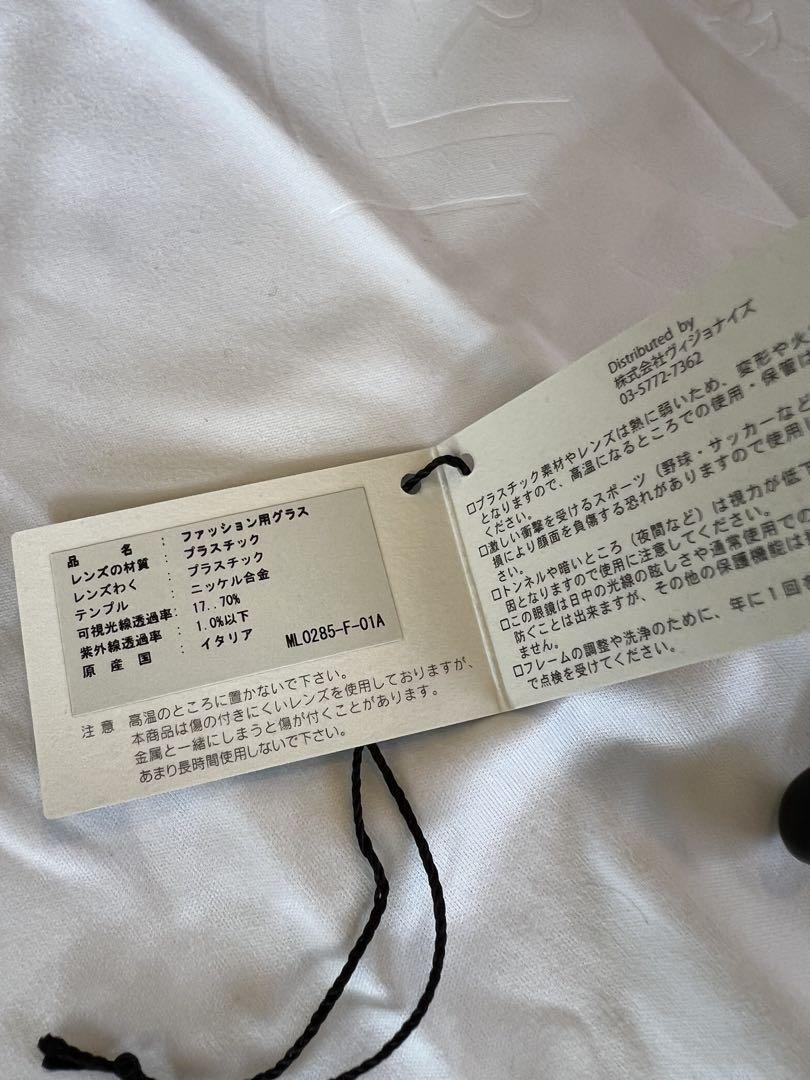 品 名 : ファッション用グラス
レンズの材質 : プラスチック
レンズわく : プラスチック
テンプル : ニッケル合金
可視光線透過率: 17..70%
紫外線透過率 : 1.0%以下
原 産 国 : イタリア ML0285-F-01A
注 意 高温のところに置かないで下さい。
本商品は傷の付きにくいレンズを使用しておりますが、
金属と一緒にしまうと傷が付くことがあります。
あまり長時間使用しないで下さい。
Distributed by
株式会社ヴィジョナイズ
03-5772-7362
□プラスチック素材やレンズは熱に弱いため、変形や火
となりますので、高温になるところでの使用・保管は
ください。
□激しい衝撃を受けるスポーツ（野球・サッカーなど
損により顔面を負傷する恐れがありますので使用し
さい。
□トンネルや暗いところ（夜間など）は視力が低下
因となりますので使用に注意してください。
□この眼鏡は日中の光線の眩しさや通常使用での
防ぐことは出来ますが、その他の保護機能は
ません。
□フレームの調整や洗浄のために、年に１回
で点検を受けてください。